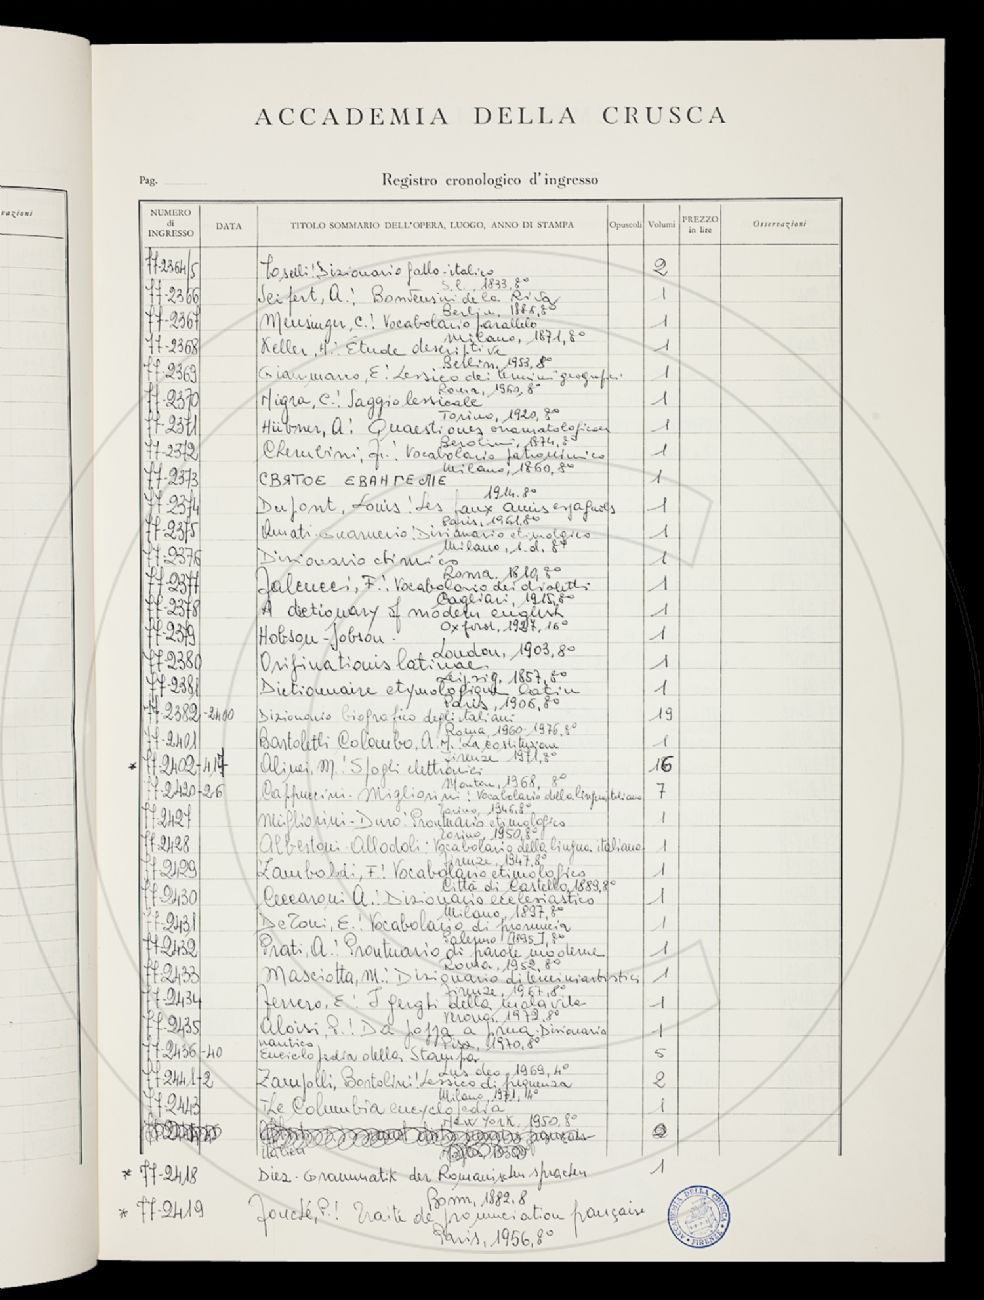 razioni
ACCADEMIA DELLA CRUSCA
Pag.
Registro cronologico d'ingresso
NUMERO di INGRESSO DATA TITOLO SOMMARIO DELL'OPERA, LUOGO, ANNO DI STAMPA Opuscoli Volumi PREZZO in lire Osservazioni
77-2364/5 Toselli: Dizionario gallo-italico 2
S.l. 1833, 8°
77-2366 Seifert, A.: Bonvesin de la Riva 1
Berlin, 1886, 8°
77-2367 C.: Vocabolario parallelo 1
Milano, 1871, 8°
77-2368 Keller, H.: Étude descriptive 1
Berlin, 1953, 8°
77-2369 Giammarco, E.: Lessico dei termini geografici 1
Roma, 1960, 8°
77-2370 Nigra, C.: Saggio lessicale 1
Torino, 1920, 8°
77-2371 Hübner, A.: Quaestiones onomatologicae 1
Berolini, 1874, 8°
77-2372 Cherubini, F.: Vocabolario patronimico 1
Milano, 1860, 8°
77-2373 СВЯТОЕ ЕВАНГЕЛIЕ 1
1914. 8°
77-2374 Dupont, Louis: Les faux amis espagnols 1
Paris, 1961, 8°
77-2375 Amati Guarnerio: Dizionario etimologico 1
Milano, s.d. 8°
77-2376 Dizionario chimico 1
Roma. 1810, 8°
77-2377 Falcucci, F.: Vocabolario dei dialetti 1
Cagliari, 1915, 8°
77-2378 A dictionary of modern english 1
Oxford, 1927, 16°
77-2379 Hobson-Jobson. 1
London, 1903, 8°
77-2380 Originationis latinae. 1
Leipzig, 1857, 8°
77-2381 Dictionnaire etymologique latin 1
Paris, 1906, 8°
77-2382-2400 Dizionario biografico degli italiani 19
Roma, 1960-1976, 8°
77-2401 Bartoletti Colombo, A.M.: La costituzione 1
Firenze 1971, 8°
* 77-2402-417 Alinei, M.: Spogli elettronici 16
Mouton, 1968, 8°
77-2420-26 Cappuccini-Migliorini: Vocabolario della lingua italiana 7
Torino, 1946, 8°
77-2427 Migliorini-Duro: Prontuario etimologico 1
Torino, 1950, 8°
77-2428 Albertoni-Allodoli: Vocabolario della lingua italiana 1
Firenze, 1947, 8°
77-2429 Zambaldi, F.: Vocabolario etimologico 1
Città di Castello, 1889, 8°
77-2430 Ceccaroni A.: Dizionario ecclesiastico 1
Milano, 1897, 8°
77-2431 De Toni, E.: Vocabolario di pronuncia 1
Palermo [1895], 8°
77-2432 Prati, A.: Prontuario di parole moderne 1
Roma, 1952, 8°
77-2433 Masciotta, M.: Dizionario di termini artistici 1
Firenze, 1967, 8°
77-2434 Ferrero, E.: I gerghi della mala vita 1
Verona, 1972, 8°
77-2435 Aloisi, P.: Da poppa a prua. Dizionario 1
nautico Pisa, 1970, 8°
77-2436-40 Enciclopedia della Stampa 5
1969, 4°
77-2441-2 Zampolli, Bortolini: Lessico di frequenza 2
Milano, 1971, 4°
77-2443 The Columbia encyclopedia 1
New York, 1950, 8°
* 77-2418 Diez. Grammatik der Romanischen sprachen 1
Bonn, 1882. 8
* 77-2419 Fouché, P.: Traité de prononciation française
Paris, 1956, 8°
ACCADEMIA DELLA CRUSCA
FIRENZE